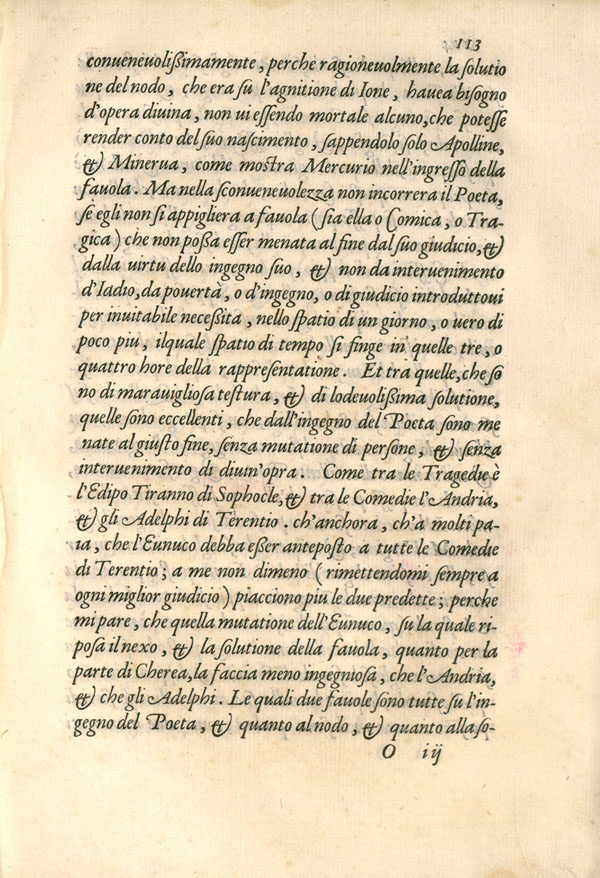 113
conueneuolißimamente, perche ragioneuolmente la solutio
ne del nodo, che era sù l'agnitione di Ione, hauea bisogno
d'opera diuina, non ui essendo mortale alcuno, che potesse
render conto del suo nascimento, sappendolo solo Apolline,
& Minerua, come mostra Mercurio nell'ingresso della
fauola. Ma nella sconueneuolezza non incorrera il Poeta,
se egli non si appigliera a fauola (sia ella o Comica, o Tra-
gica) che non poßa esser menata al fine dal suo giudicio, &
dalla virtu dello ingegno suo, & non da interuenimento
d'Iadio, da pouertà, o d'ingegno, o di giudicio introduttoui
per inuitabile necessita, nello spatio di un giorno, o uero di
poco piu, ilquale spatio di tempo si finge in quelle tre, o
quattro hore della rappresentatione. Et tra quelle, che so
no di marauigliosa testura, & di lodeuolissima solutione,
quelle sono eccellenti, che dall'ingegno del Poeta sono me
nate al giusto fine, senza mutatione di persone, & senza
interuenimento di diuin'opra. Come tra le Tragedie è
l'Edipo Tiranno di Sophocle, & tra le Comedie l'Andria,
& gli Adelphi di Terentio. ch'anchora, ch'a molti pa-
ia, che l'Eunuco debba eßer anteposto a tutte le Comedie
di Terentio; a me non dimeno (rimettendomi sempre a
ogni miglior giudicio) piacciono piu le due predette; perche
mi pare, che quella mutatione dell'Eunuco, su la quale ri-
posa il nexo, & la solutione della fauola, quanto per la
parte di Cherea, la faccia meno ingegniosa, che l'Andria,
& che gli Adelphi. Le quali due fauole sono tutte su l'in-
gegno del Poeta, & quanto al nodo, & quanto alla so-
O iij